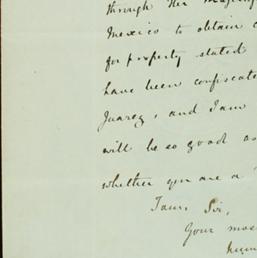 through Her Majesty
Mexico to obtain
for property stated
have been confiscate
Juarez, and I am
will be so good as
whether you are a
I am, Sir,
Your mos